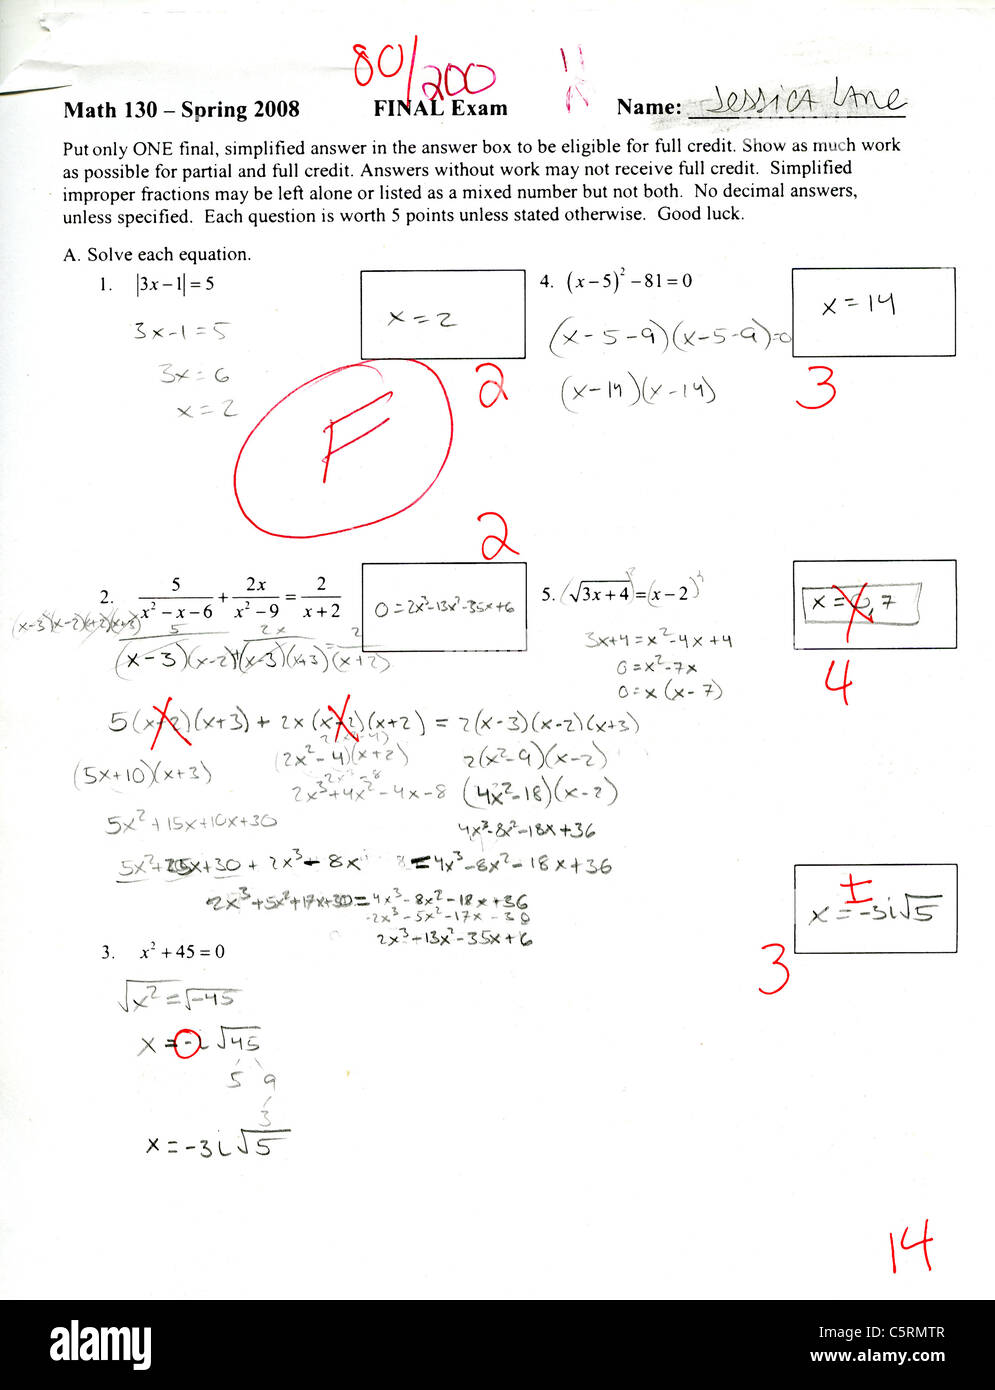 80/200
Math 130 – Spring 2008 FINAL Exam Name: Jessica Lane
Put only ONE final, simplified answer in the answer box to be eligible for full credit. Show as much work
as possible for partial and full credit. Answers without work may not receive full credit. Simplified
improper fractions may be left alone or listed as a mixed number but not both. No decimal answers,
unless specified. Each question is worth 5 points unless stated otherwise. Good luck.
A. Solve each equation.
1. |3x−1| = 5
3x-1=5
3x=6
x=2
x=2
2
F
4. (x−5)² −81=0
(x-5-9)(x-5-9)=0
(x-14)(x-14)
x=14
3
2
2. 5/(x²−x−6) + 2x/(x²−9) = 2/(x+2)
0=2x³-13x²-35x+6
(x-3)(x-2)(x+2)(x+3)
5 2x 2
(x-3)(x-2)+(x-3)(x+3) (x+2)
5(x+2)(x+3) + 2x(x-2)(x+2) = 2(x-3)(x-2)(x+3)
(5x+10)(x+3) (2x²-4)(x+2) 2(x²-9)(x-2)
2x³+4x²-4x-8 (4x²-18)(x-2)
5x²+15x+10x+30 4x³-8x²-18x+36
5x²+25x+30 + 2x³-8x =4x³-8x²-18x+36
2x³+5x²+17x+30=4x³-8x²-18x+36
-2x³-5x²-17x-30
2x³-13x²-35x+6
5. (√3x+4)²=(x−2)²
3x+4=x²-4x+4
0=x²-7x
0=x(x-7)
x=0,7
4
3. x²+45=0
√x²=√-45
x=-i√45
5 9
3
x=-3i√5
±
x=-3i√5
3
14
alamy
Image ID: C5RMTR
www.alamy.com